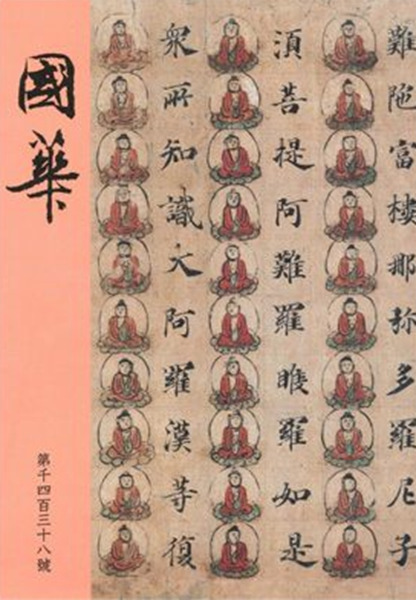 國華
第千四百三十八號
難陁富樓那弥多羅尼子
湏菩提阿難羅睺羅如是
衆所知識大阿羅漢等復